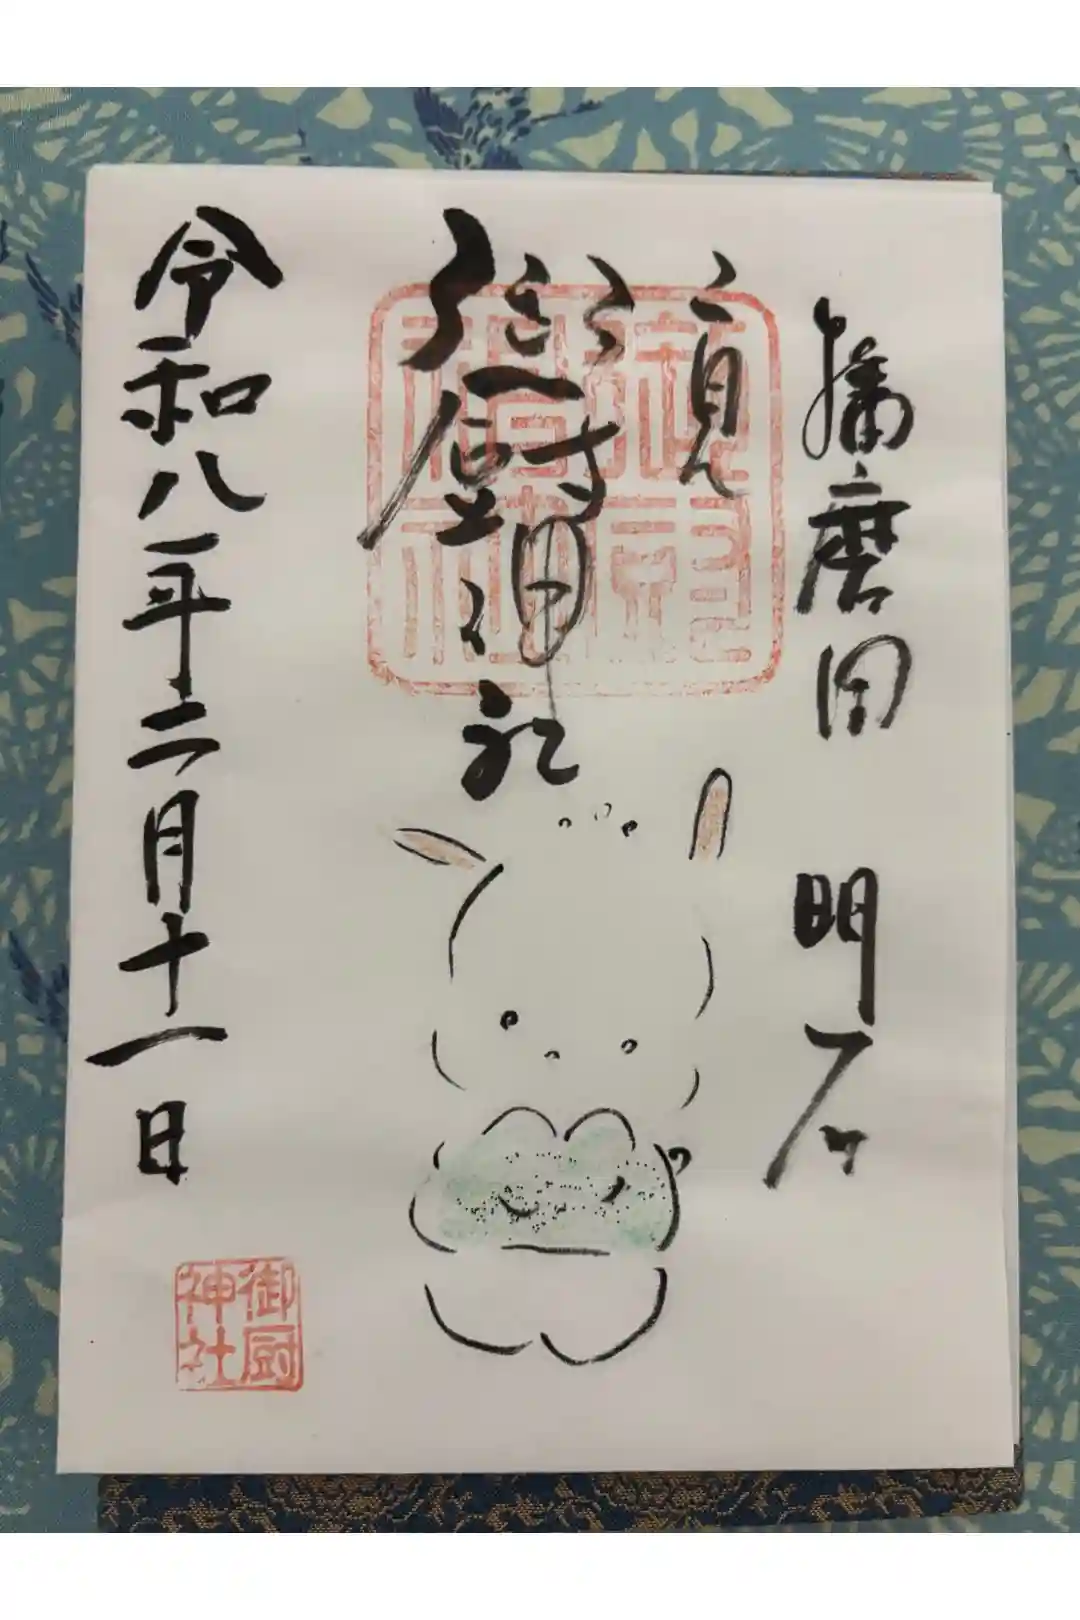 播磨国 明石
御厨神社
令和八年二月十一日
御厨
神社